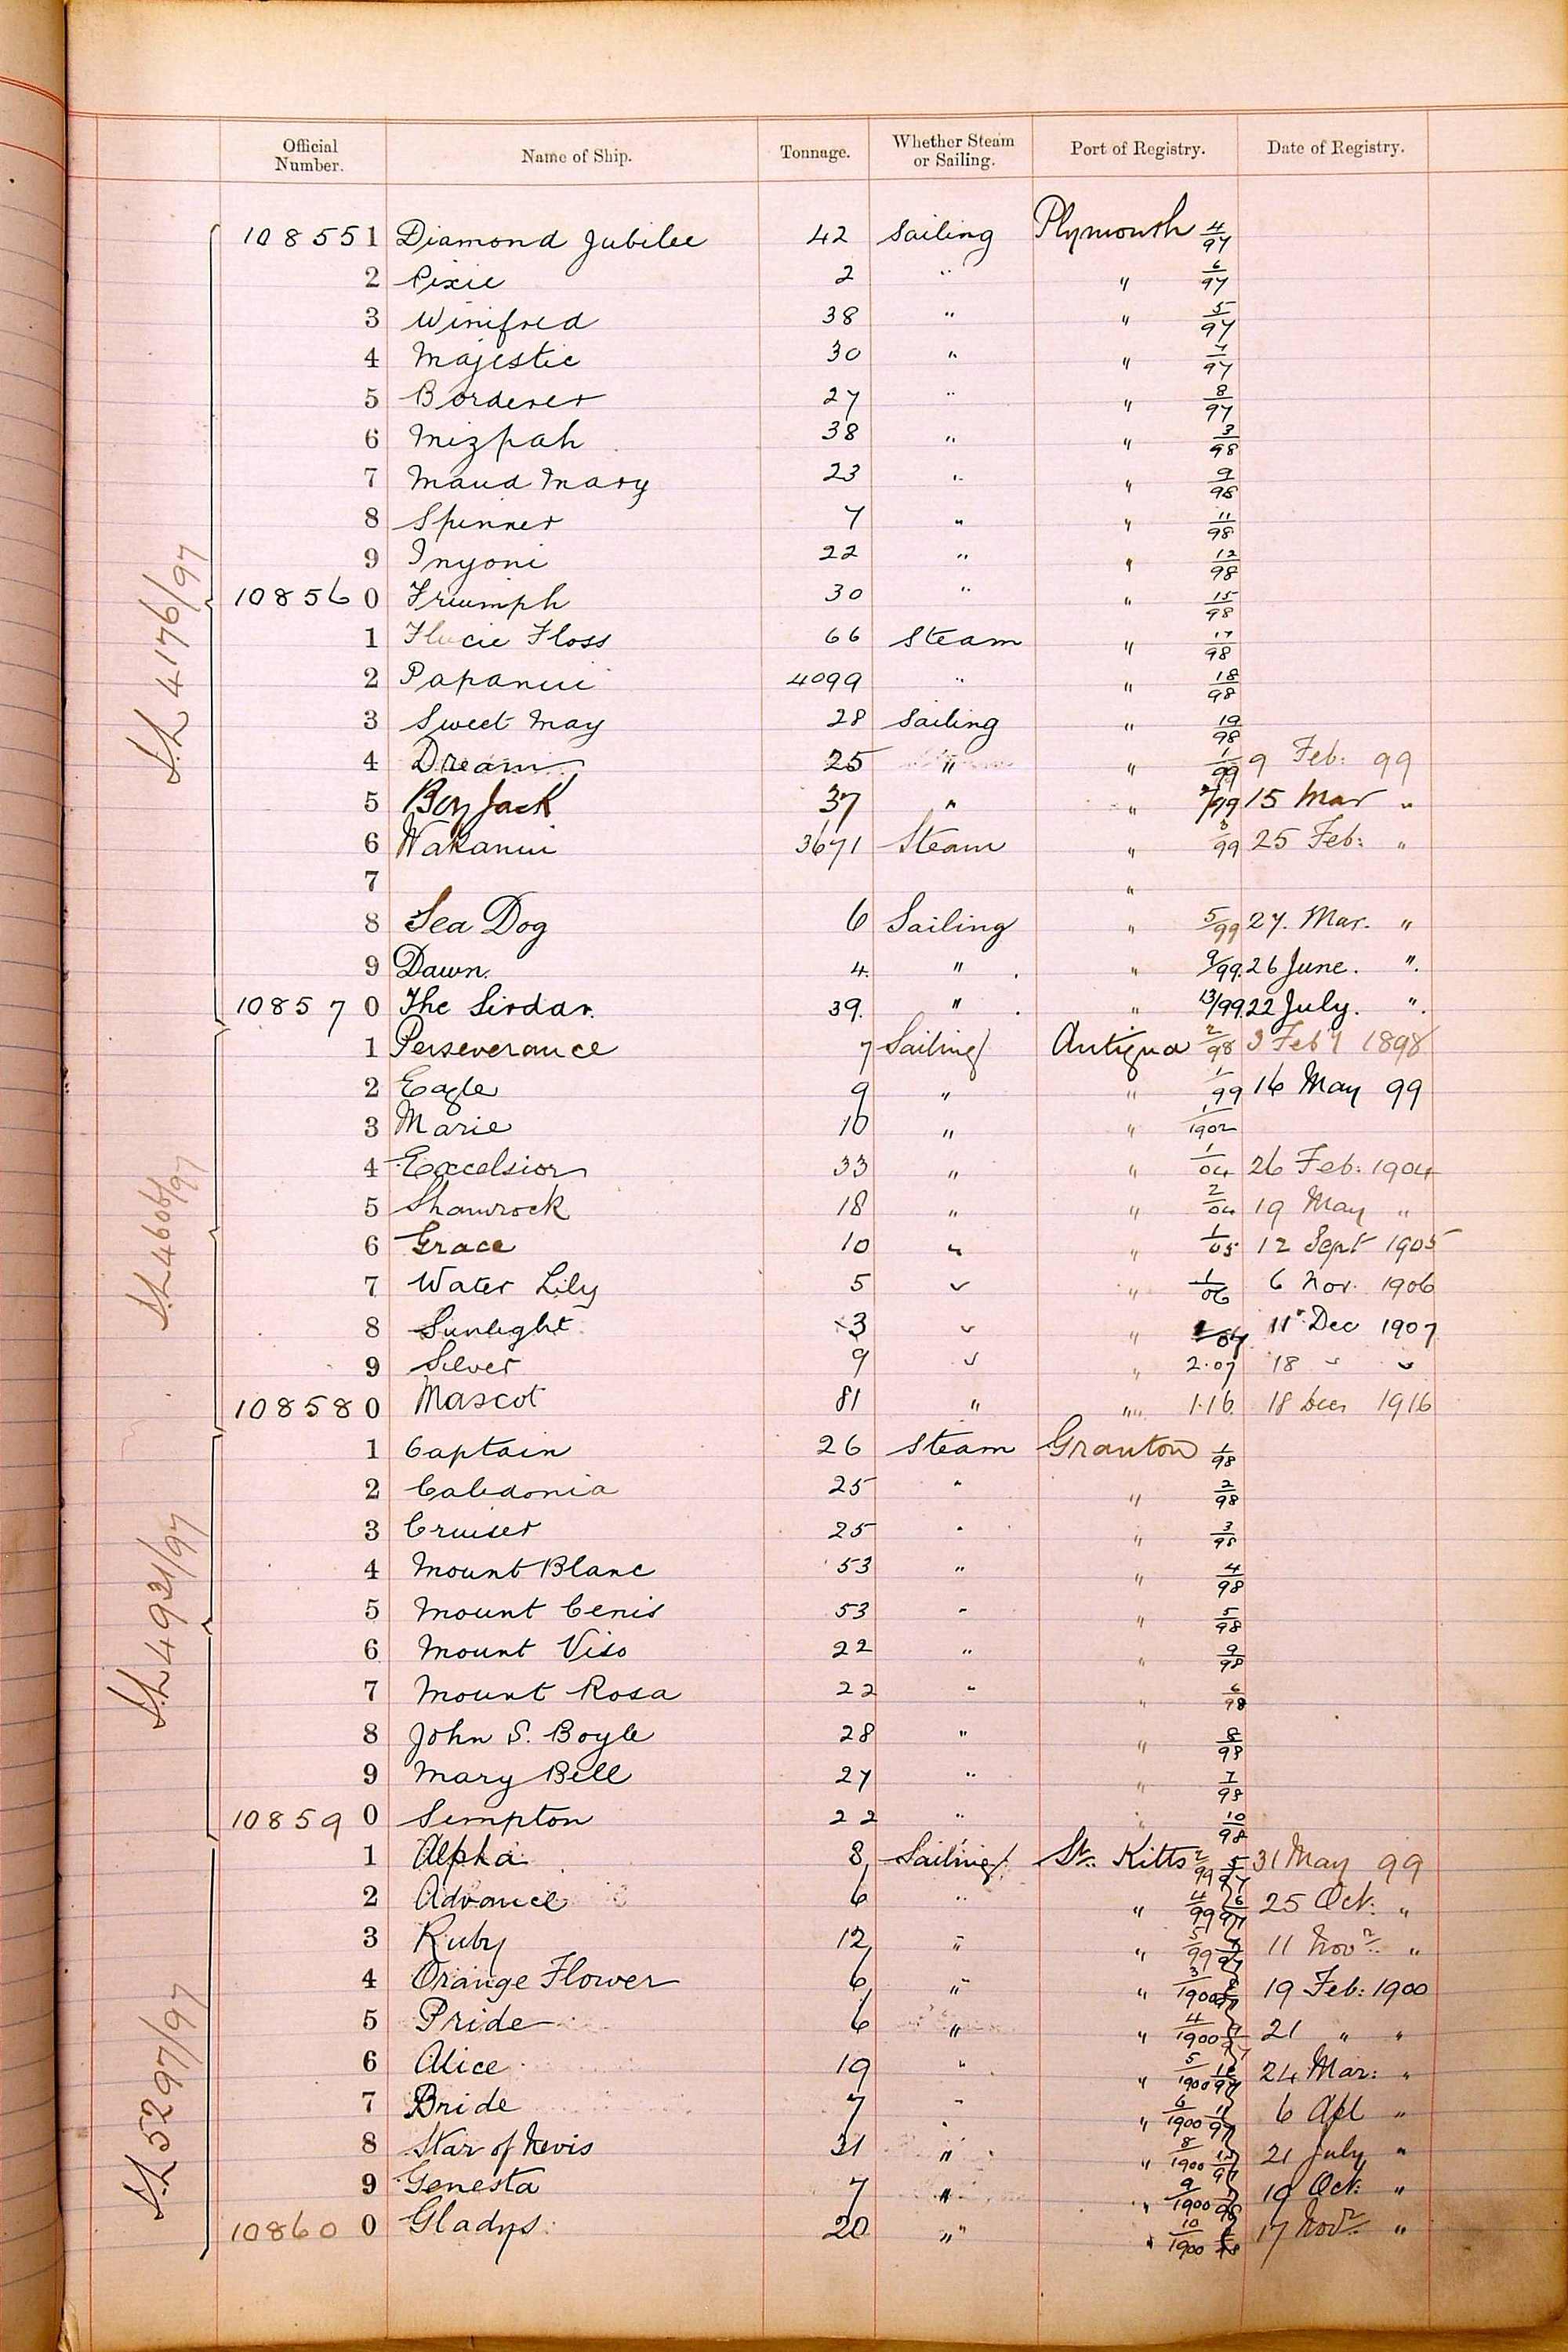 Official Number. Name of Ship. Tonnage. Whether Steam or Sailing. Port of Registry. Date of Registry.
108551 Diamond Jubilee 42 Sailing Plymouth 4/97
2 Pixie 2 " " 6/97
3 Winifred 38 " " 5/97
4 Majestic 30 " " 7/97
5 Borderer 27 " " 8/97
6 Mizpah 38 " " 3/98
7 Maud Mary 23 " " 9/98
8 Spinner 7 " " 11/98
9 Inyoni 22 " " 12/98
108560 Triumph 30 " " 15/98
1 Floss 66 Steam " 17/98
2 Papanui 4099 " " 18/98
3 Sweet May 28 Sailing " 19/98
4 Dream 25 " " 1/99 9 Feb: 99
5 Boy Jack 37 " " 2/99 15 Mar "
6 Wakanui 3671 Steam " 3/99 25 Feb: "
7 "
8 Sea Dog 6 Sailing " 5/99 27. Mar. "
9 Dawn. 4. " " 9/99. 26 June. ".
108570 The Sirdar. 39. " " 13/99 22 July. ".
1 Perseverance 7 Sailing Antigua 2/98 3 Feby 1898
2 Eagle 9 " " 1/99 16 May 99
3 Marie 10 " " 1/1902
4 Excelsior 33 " " 1/04 26 Feb: 1904
5 Shamrock 18 " " 2/04 19 May "
6 Grace 10 " " 1/05 12 Sept 1905
7 Water Lily 5 " " 1/06 6 Nov. 1906
8 Sunlight 3 " " 1/07 11 Dec 1907
9 Silver 9 " " 2.07 18 " "
108580 Mascot 81 " " 1.16 18 Dec 1916
1 Captain 26 Steam Granton 1/98
2 Caledonia 25 " " 2/98
3 Cruiser 25 " " 3/98
4 Mount Blanc 53 " " 4/98
5 Mount Cenis 53 " " 5/98
6 Mount Viso 22 " " 9/98
7 Mount Rosa 22 " " 6/98
8 John S. Boyle 28 " " 8/98
9 Mary Bell 27 " " 7/98
108590 Simpton 22 " " 10/98
1 Alpha 8 Sailing St. Kitts 2/99 5/97 31 May 99
2 Advance 6 " " 4/99 6/97 25 Oct: "
3 Ruby 12 " " 5/99 11 Novr. "
4 Orange Flower 6 " " 3/1900 19 Feb: 1900
5 Pride 6 " " 4/1900 21 " "
6 Alice 19 " " 5/1900 24 Mar: "
7 Bride 7 " " 6/1900 11/97 6 Apl "
8 Star of Nevis 31 " " 8/1900 21 July "
9 Genesta 7 " " 9/1900 19 Oct: "
108600 Gladys. 20 " " 10/1900 17 Novr. "
4176/97
4606/97
4921/97
5297/97